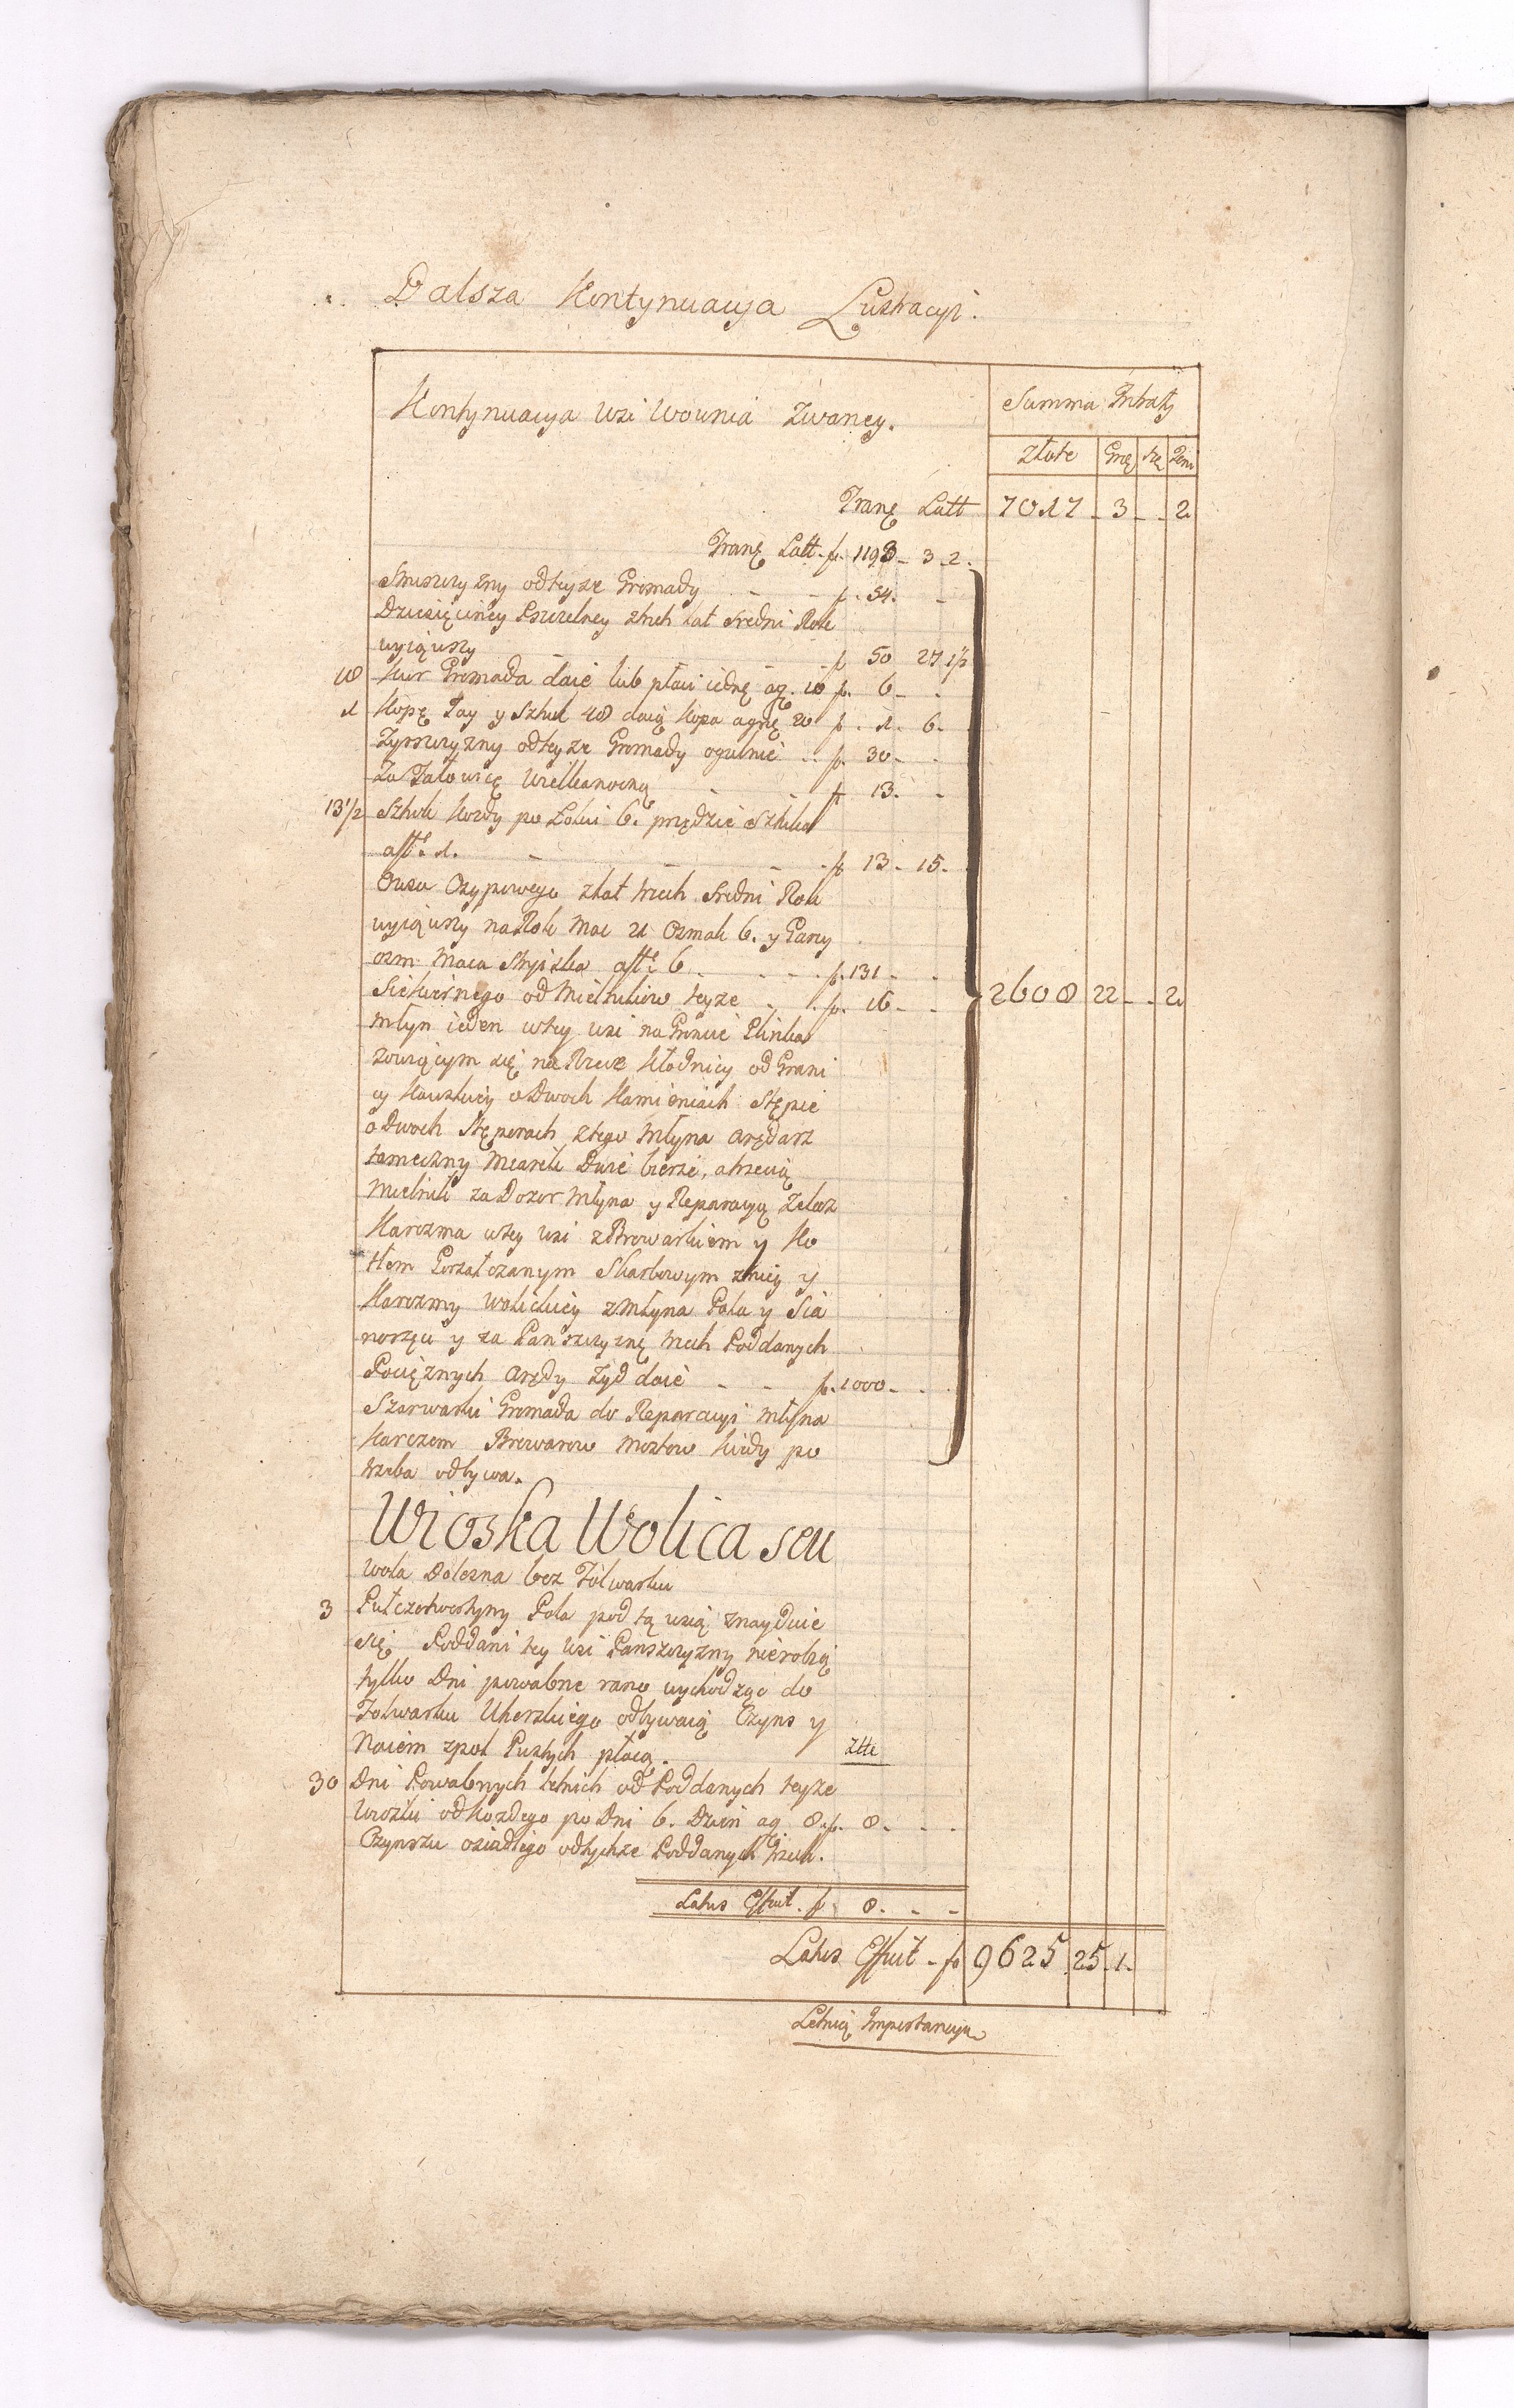 Dalsza Kontynuacya Lustracyi.
Kontynuacya Wsi Wownia Zwaney.
Summa Intraty
Złote Gro
Tranę Latt 7017 - 3 - - 2
Tranę Latt. f. 1193 - 3 - 2.
odteyze Gromady - - f. 54. -
Dziesięciney Pszczelney ztrzech Lat sredni Rok
wyiąwszy - - f 50 27 1½
10 Kur Gromada daie lub płaci iednę ag. 18 f. 6 - -
1 Kopę Jay y Sztuk 48 daią kopa agrę 20 f. 1. 6.
odteyze Gromady ogulnie - f. 30 - -
Za Jałowicę Wielkanocną - - f 13. -
13½ Sztuk Kozdy po Łokci 6. przędzie Sztuka
aff. 1. - - - f 13 - 15.
Owsa Osypowego zLat trzech Sredni Rok
wyiąwszy na Rok Mac 21 Osmak 6. y Garcy
osm. Maca Stryiska aff. 6 - - - f. 131 - -
Siekiernego od Mielnikow teyze - f. 16 - -
2608 22 - - 2
Młyn ieden wtey wsi na Groncie
zowiącym się na Rzece Kłodnicy od Grani
cy o Dwoch Kamieniach Stępie
o Dwoch Stęporach ztego Młyna Arędarz
tameczny Miarek Dwie bierze, a trzecią
Mielnik za Dozor Młyna y Reparacyą Zelaz
Karczma wtey wsi z Browarkiem y Ko
tłem Gorzałczanym Skarbowym zniey y
Karczmy Wolickiey zMłyna Pola y Sia
norzęci y za Panszczyznę trzech Poddanych
Pociężnych Arędy Zyd daie - - f. 1000 - -
Szarwarki Gromada do Reparacyi Młyna
Karczem Browarow Mostow kiedy po
trzeba odbywa.
Wioska Wolica seu
Wola Dolesna bez Folwarku
3 Pułczetwertyny Pola pod tą wsią znayduie
się. Poddani tey Wsi Panszczyzny nierobią
tylko Dni powabne rano wychodząc do
Folwarku Uherskiego odbywaią Czyns y
Naiem zpol Pustych płacą. Złłe
30 Dni Powabnych letnich od Poddanych teyze
Wioski od kozdego po Dni 6. Dzien ag 8. f. 8. - -
Czynszu osiadłego odtychze Poddanych trzech.
Latus Effecit. f. 8. - -
Latus Effecit - f 9625 25 1 -
Letnią Importancyą